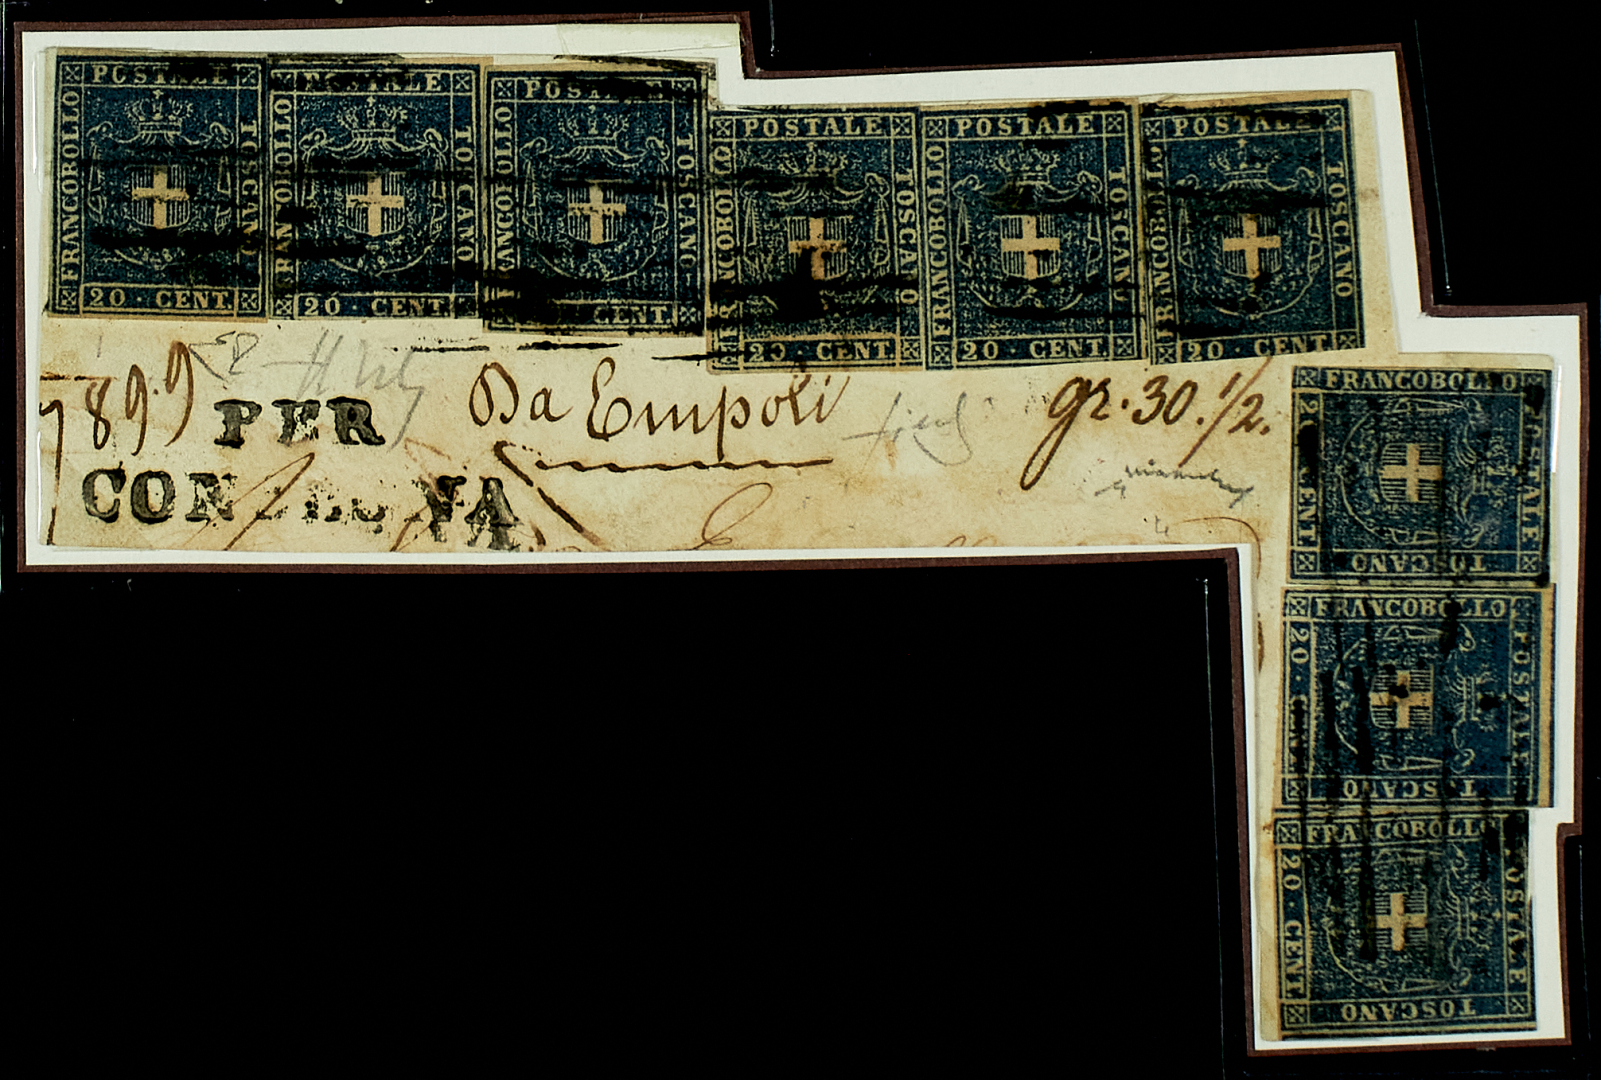 POSTALE
FRANCOBOLLO
TOSCANO
20 · CENT.
POSTALE
FRANCOBOLLO
TOSCANO
20 · CENT.
POSTALE
FRANCOBOLLO
TOSCANO
CENT.
POSTALE
FRANCOBOLLO
TOSCANO
20 · CENT.
POSTALE
FRANCOBOLLO
TOSCANO
20 · CENT.
POSTALE
FRANCOBOLLO
TOSCANO
20 · CENT.
Da Empoli
gr. 30. 1/2.
PER
FRANCOBOLLO
20 CENT.
POSTALE
TOSCANO
FRANCOBOLLO
20 ·
POSTALE
TOSCANO
FRANCOBOLLO
20 · CENT.
POSTALE
TOSCANO